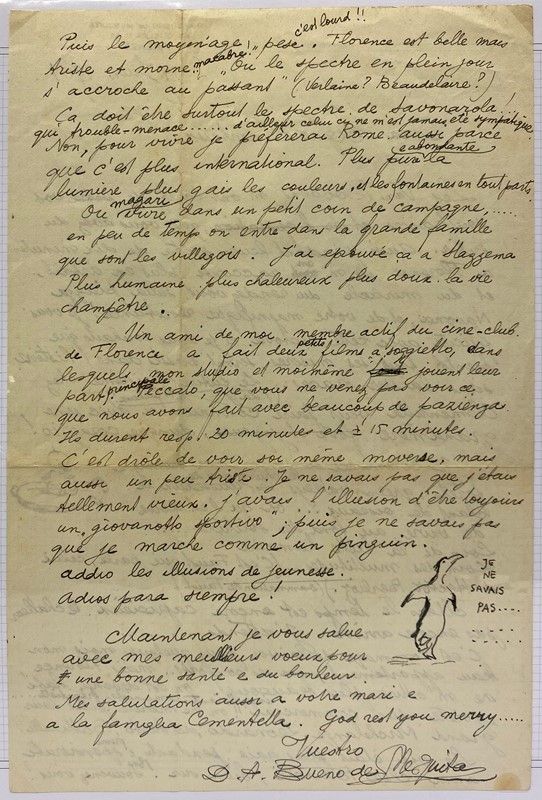 c'est lourd!!
Puis le moyenâge! „pèse. Florence est belle mais
triste et morne. macabre! „Ou le spectre en plein jour
s'accroche au passant" (Verlaine? Beaudelaire?)
Ça doit être surtout le spectre de savonarola...!
qui trouble-menace...... d'ailleur celui ci ne m'est jamais été sympatique.
Non, pour vivre je préfèrerai Rome. aussi parce
que c'est plus international. Plus pur la e abondante
lumière plus gais les couleurs, et les fontaines en tout parts.
Ou magari vivre dans un petit coin de campagne,.....
en peu de temps on entre dans la grande famille
que sont les villagois. J'ai eprouvé ça a Hazzema
Plus humaine, plus chaleureux plus doux. la vie
champêtre.
Un ami de moi, membre actif du cine-club
de Florence a fait deux petits films a soggietto, dans
lesquels mon studio et moimême jouent leur
part principale. Peccato, que vous ne venez pas voir ce
que nous avons fait avec beaucoup de pazienza.
Ils durent resp. 20 minutes et ± 15 minutes.
C'est drôle de voir soi même moverse, mais
aussi un peu triste. Je ne savais pas que j'étais
tellement vieux. J'avais l'illusion d'être toujours
un „giovanotto sportivo"; puis je ne savais pas
que je marche comme un pinguin.
addio les illusions de jeunesse.
Adios para siempre!
JE
NE
SAVAIS
PAS....
Maintenant je vous salue
avec mes meilleurs voeux pour
une bonne santé e du bonheur.
Mes salutations aussi a votre mari e
a la famiglia Cementella. God rest you merry.....
Vuestro
D. A. Bueno de Mesquita